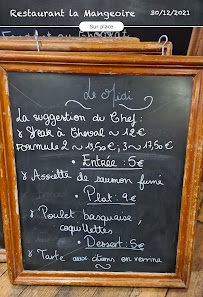 Restaurant la Mangeoire 30/12/2021
Sur place
Le Midi
La suggestion du Chef:
Steak à Cheval ~ 12€
Formule 2 ~ 13,50€; 3 ~ 17,50€
• Entrée : 5€
Assiette de saumon fumé
• Plat : 9€
Poulet basquaise,
coquillettes
• Dessert : 5€
Tarte aux citrons en verrine